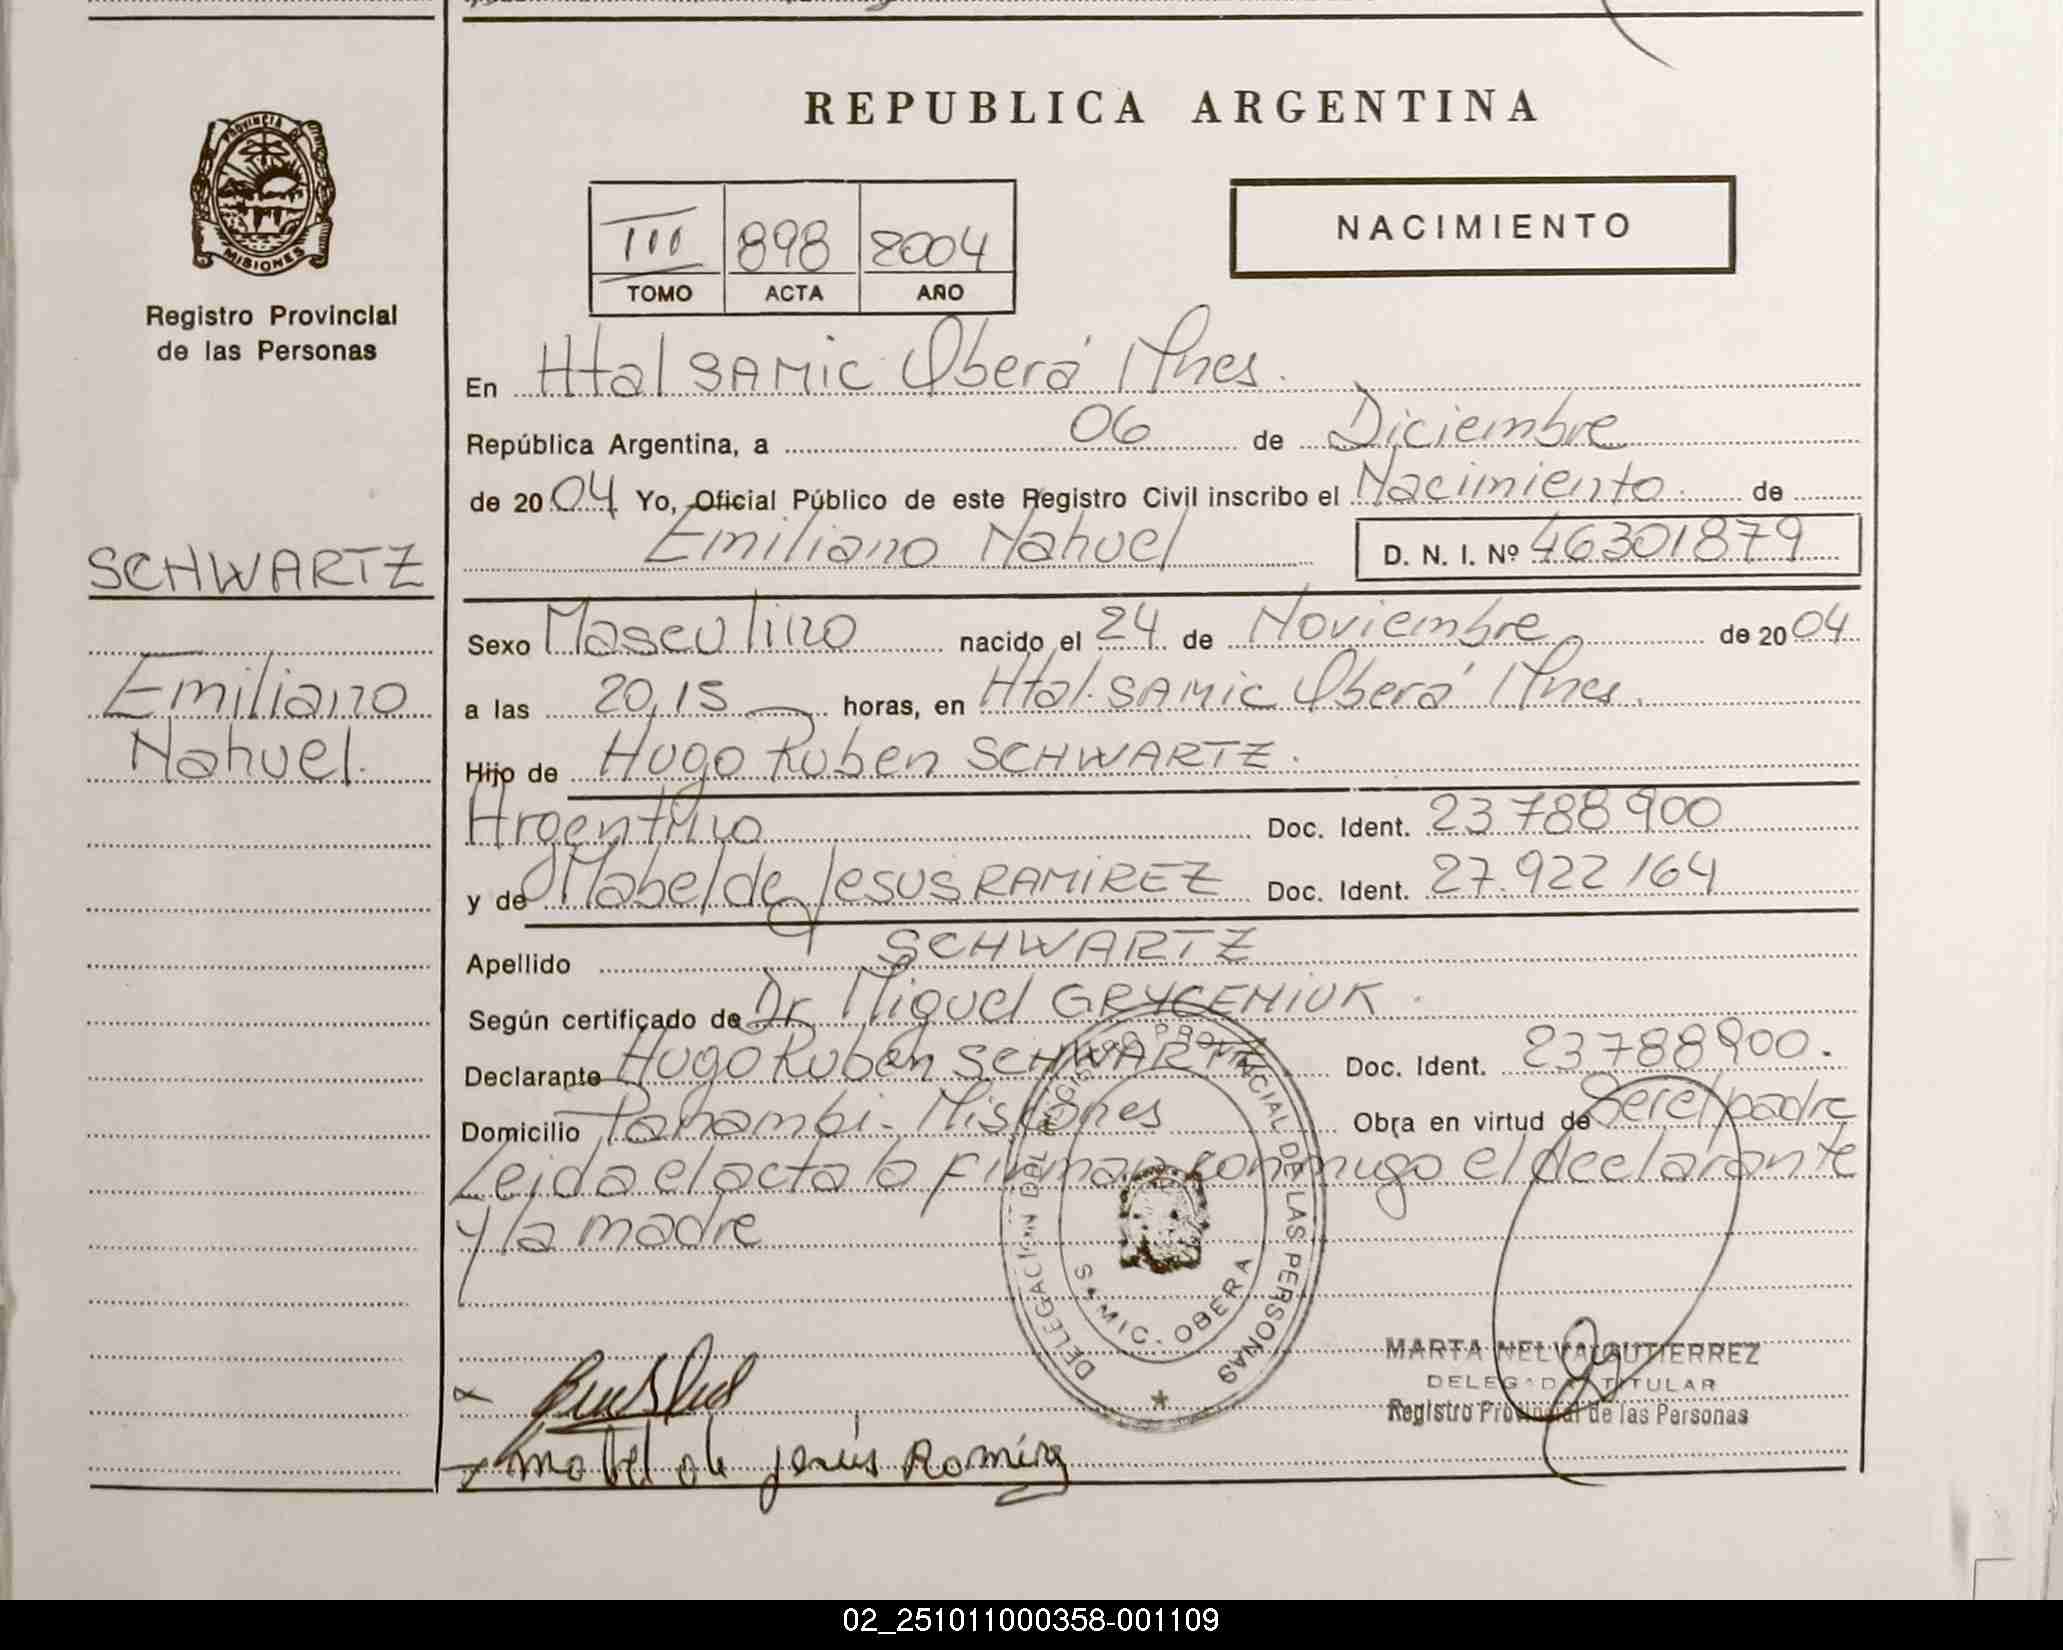 REPUBLICA ARGENTINA
PROVINCIA DE
MISIONES
Registro Provincial
de las Personas
III 898 2004
TOMO ACTA AÑO
NACIMIENTO
En Htal SAMIC Oberá Mnes.
República Argentina, a 06 de Diciembre
de 2004 Yo, Oficial Público de este Registro Civil inscribo el Nacimiento de
Emiliano Nahuel D. N. I. Nº 46301879
SCHWARTZ
Emiliano
Nahuel.
Sexo Masculino nacido el 24 de Noviembre de 2004
a las 20,15 horas, en Htal. SAMIC Oberá Mnes.
Hijo de Hugo Ruben SCHWARTZ.
Argentino Doc. Ident. 23 788 900
y de Mabel de Jesus RAMIREZ Doc. Ident. 27.922 164
Apellido SCHWARTZ
Según certificado de Dr Miguel
Declarante Hugo Ruben SCHWARTZ Doc. Ident. 23788900.
Domicilio Panambi - Misiones Obra en virtud de Ser el padre
Leida el acta la firman conmigo el declarante
y la madre
DELEGACION DEL REGISTRO PROVINCIAL DE LAS PERSONAS
SAMIC. OBERA
MARTA NELVA GUTIERREZ
DELEGADA TITULAR
Registro Provincial de las Personas
Mabel de jesús Ramírez
02_251011000358-001109